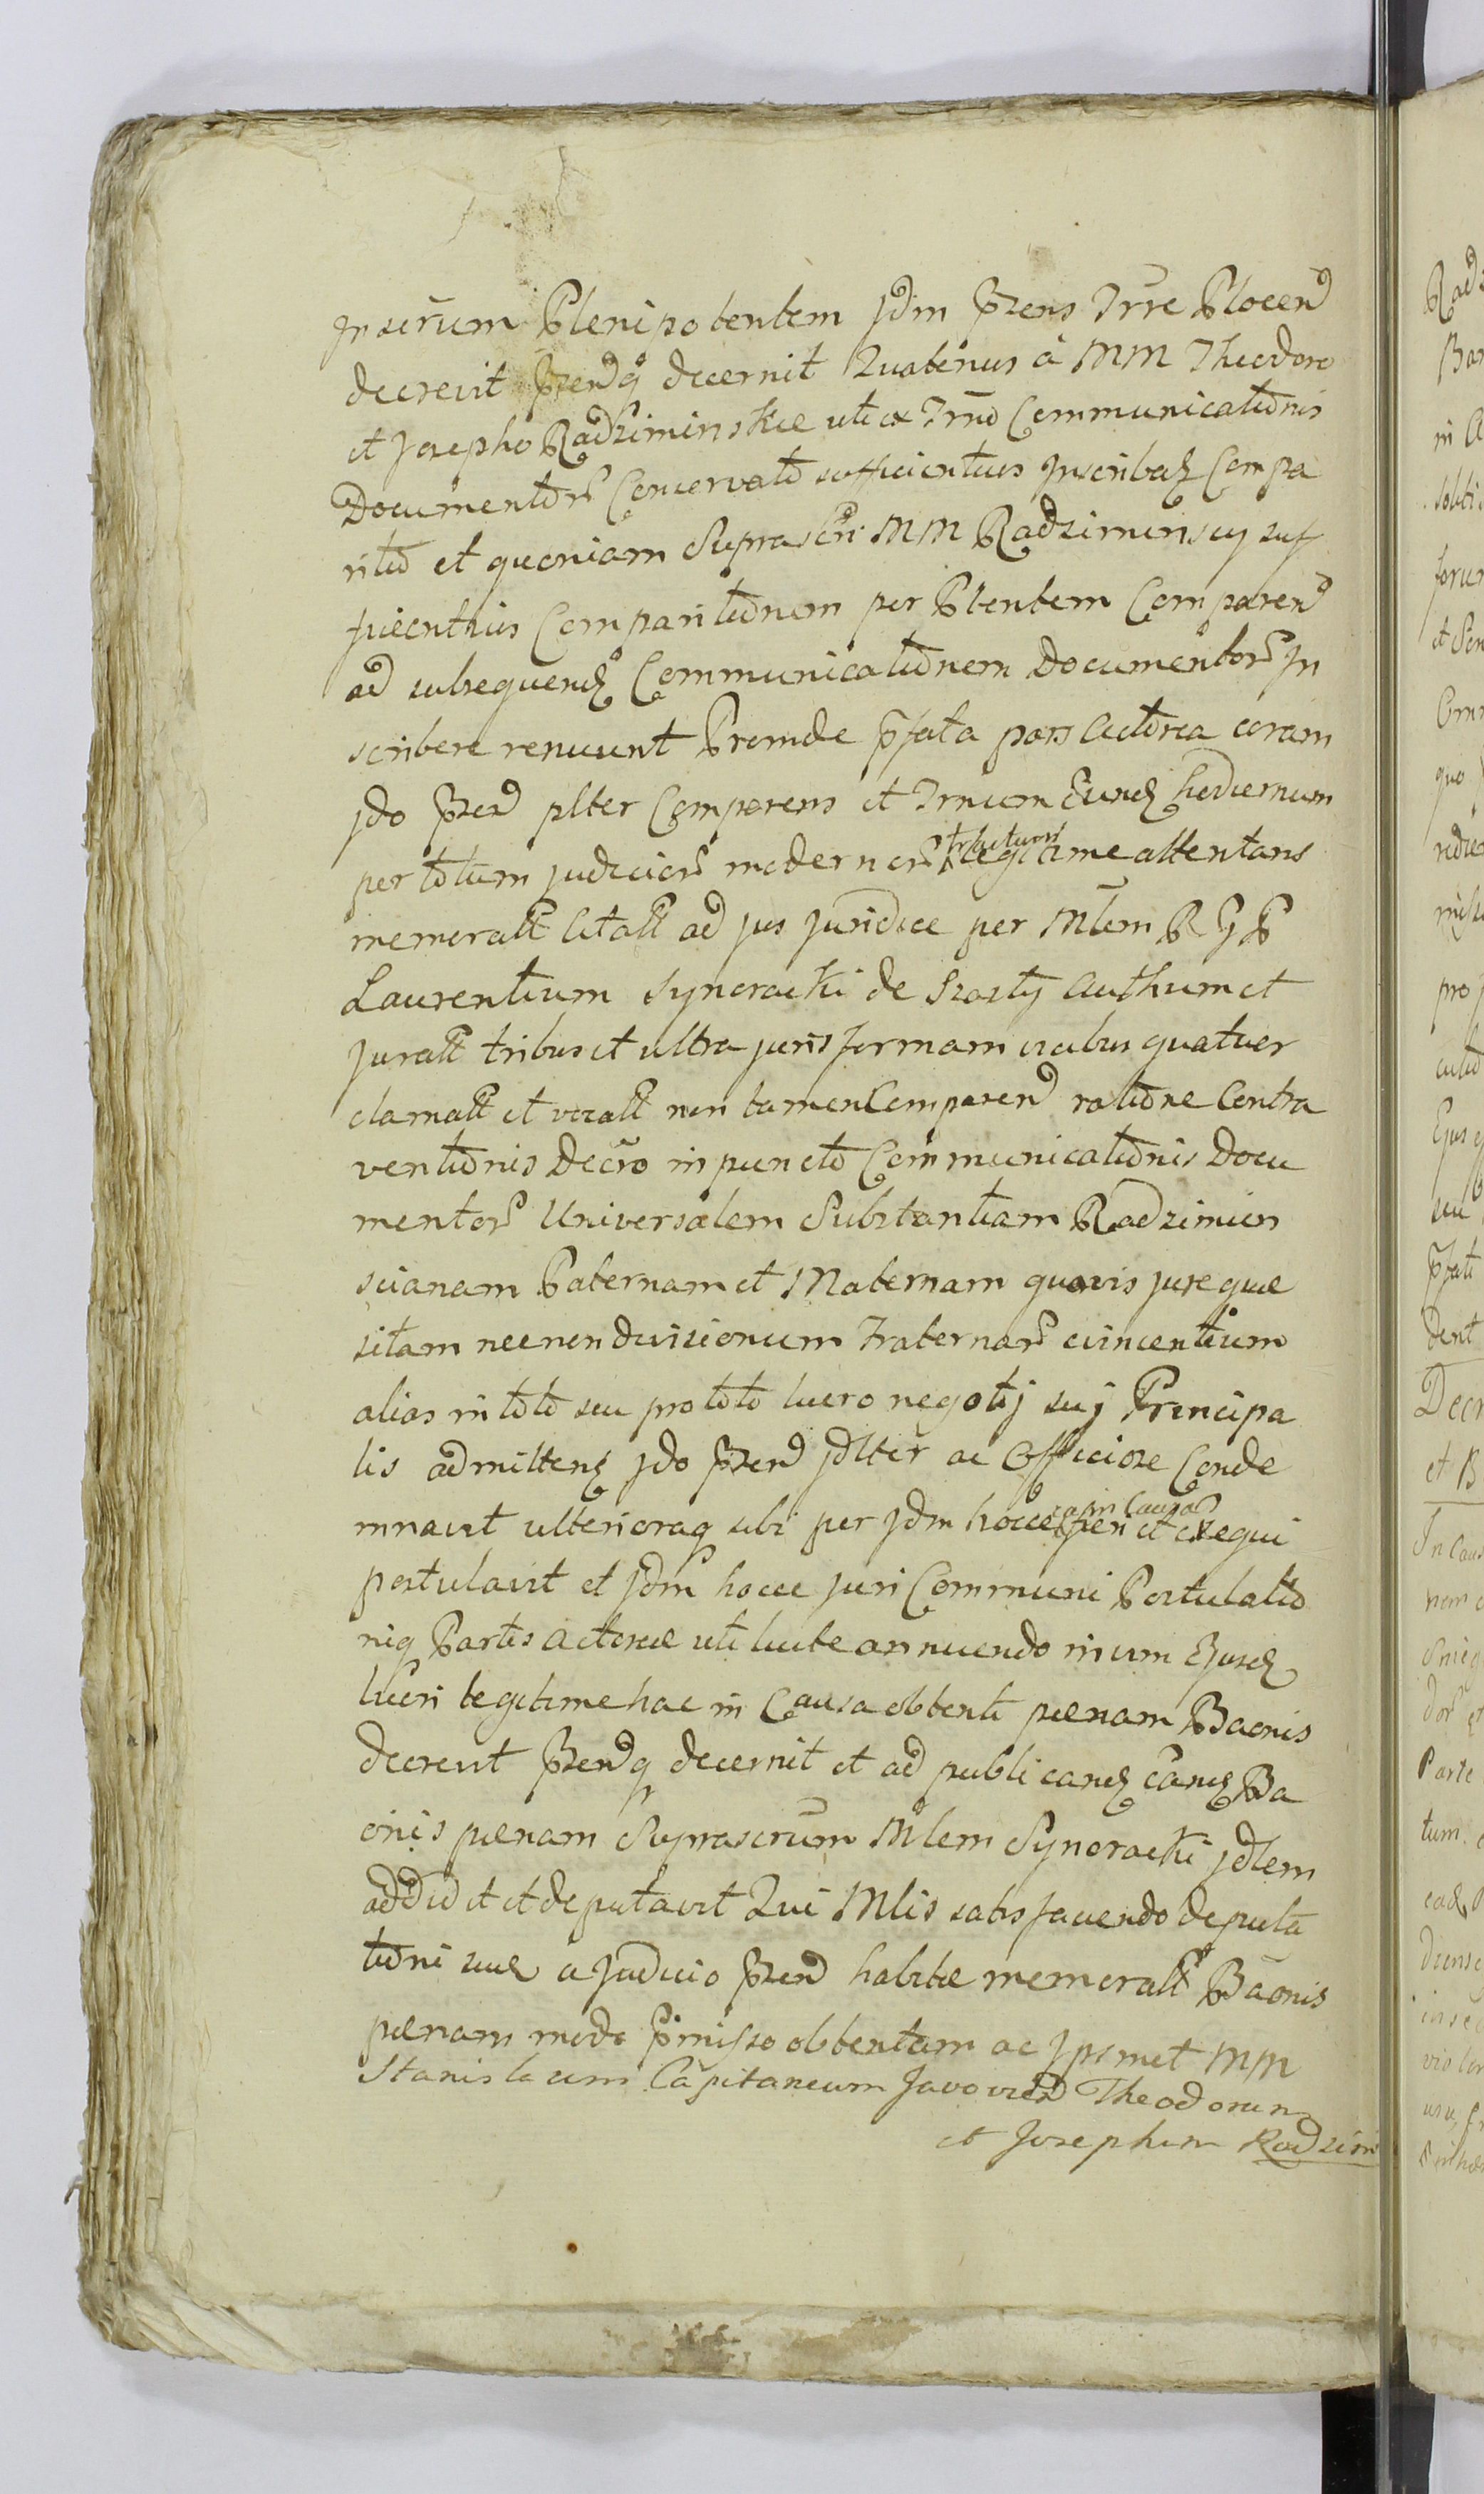 Inscrum Plenipotentem Jdm Przens Trre Plocen
decrevit Przendq decernit Quatenus a MM Theodoro
et Josepho Radziminskie uti ex Trno Communicationis
Documentor Conservato sufficientius Inscribatz Compa
ritio et quoniam Suprascri MM Radziminscy suf
ficientius Comparitionem per Plentem Comparen
ad subsequendz Communicationem Documentor In
scribere renuunt Proinde pfata pars Actorea coram
Jdo Przen plter Comparens et Trnum Eundz hodiernum
per totum judicior modernor tractum legitime attentans
memoratt Citatt ad jus juridice per Mlem R G P
Laurentium Syneracki de Szosty Authum et
juratt tribus et ultra juris formam vicibus quatuor
clamatt et vocatt non tamen Comparen ratione Contra
ventionis Decro in puncto Communicationis Docu
mentor Universalem Substantiam Radzimin
scianam Paternam et Maternam quovis jure quae
sitam necnon divisionum Fraternar evincentium
alias in toto seu pro toto lucro negotij suj Principa
lis admittenz Jdo Przen jdlter ac Officiose Conde
mnavit ulterioraq sibi per Jdm hocce eapin Causa fieri et exequi
postulavit et Jdm hocce juri Communi Postulatio
niq Partis Actoreae uti luite annuendo in vim Ejusdz
lucri legitime hac in Causa obtenti paenam Baonis
decrevit Przendq decernit et ad publicandz eandz Ba
onis paenam Suprascrum Mlem Syneracki jdlem
addidit et deputavit Qui Mlis satisfaciendo deputa
tioni suae a Judicio Przen habitae memoratt Baonis
paenam modo pmisso obtentam ac Ipsmet MM
Stanislaum Capitaneum Javovien Theodorum
et Josephum Radzimi